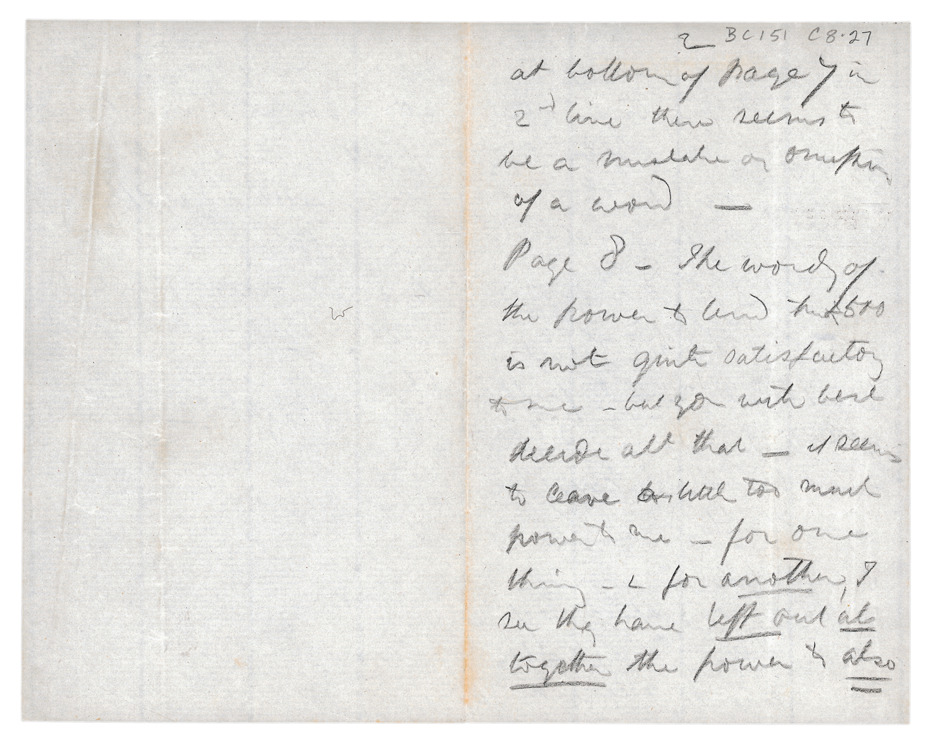 2 BC151 C8.27
at bottom of page 7 in
2d line there seems to
be a mistake or omission
of a word —
Page 8 - The wordg of
the power to lend the £500
is not quite satisfactory
to me - but you will best
decide all that — it seems
to leave little too much
power to me - for one
thing - & for another, I
see they have left out al
together the power to also